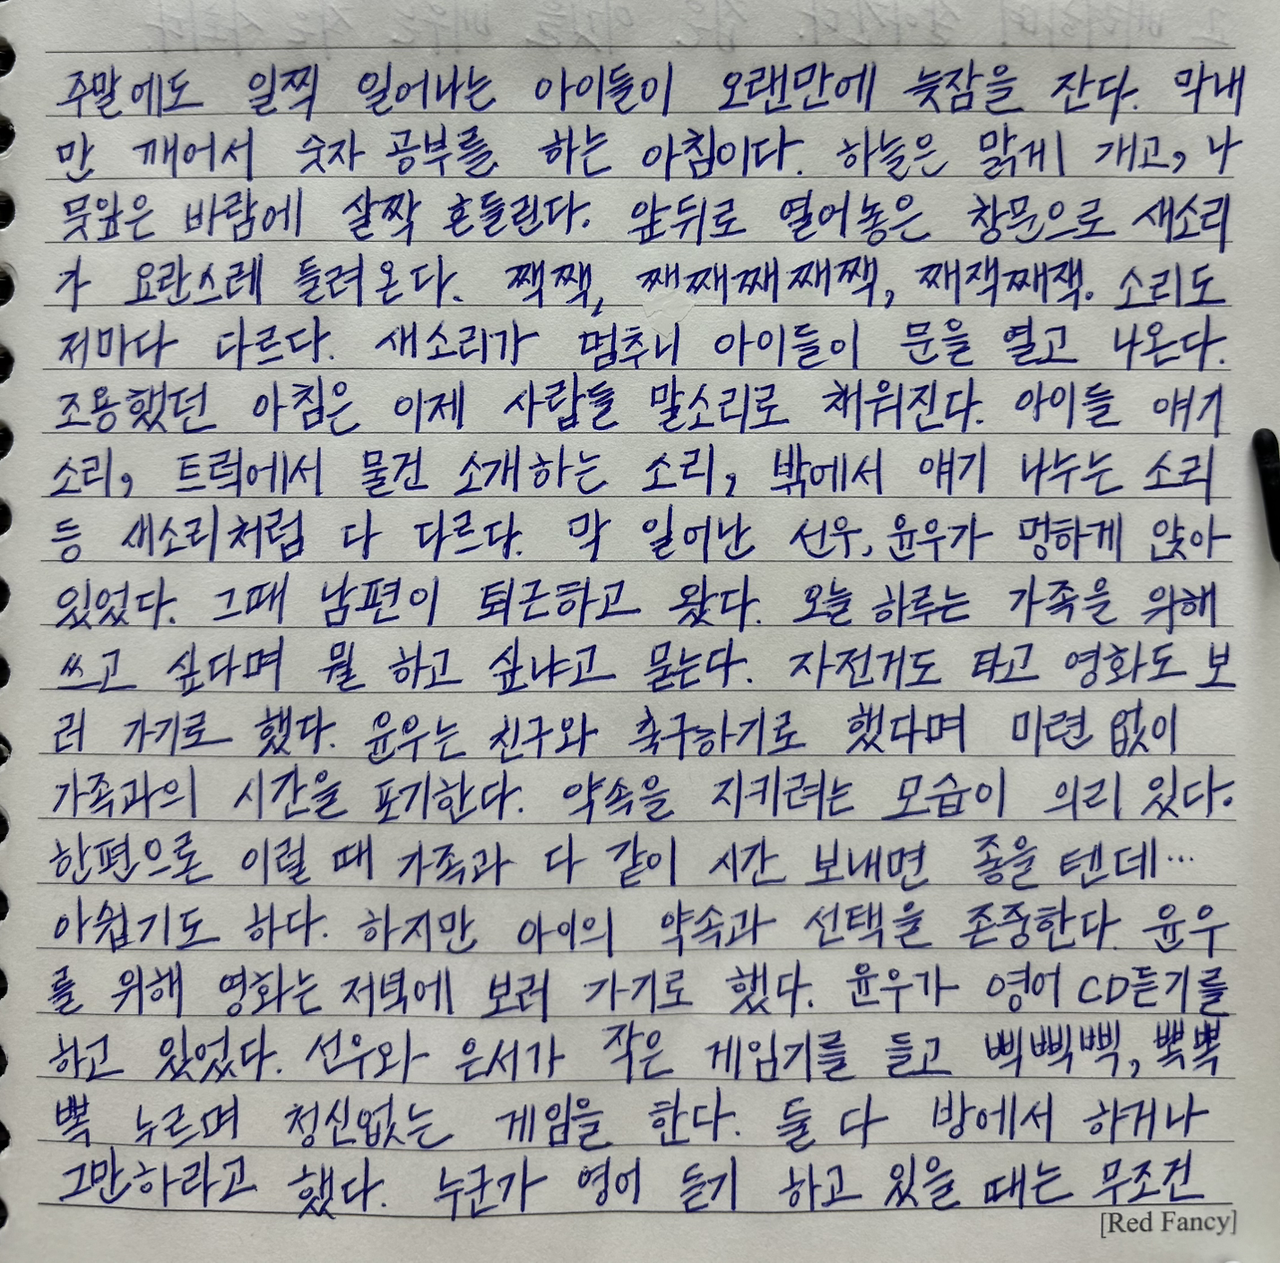 주말에도 일찍 일어나는 아이들이 오랜만에 늦잠을 잔다. 막내
만 깨어서 숫자 공부를 하는 아침이다. 하늘은 맑게 개고, 나
뭇잎은 바람에 살짝 흔들린다. 앞뒤로 열어놓은 창문으로 새소리
가 요란스레 들려온다. 짹짹, 째째째째짹, 째잭째잭. 소리도
저마다 다르다. 새소리가 멈추니 아이들이 문을 열고 나온다.
조용했던 아침은 이제 사람들 말소리로 채워진다. 아이들 얘기
소리, 트럭에서 물건 소개하는 소리, 밖에서 얘기 나누는 소리
등 새소리처럼 다 다르다. 막 일어난 선우, 윤우가 멍하게 앉아
있었다. 그때 남편이 퇴근하고 왔다. 오늘 하루는 가족을 위해
쓰고 싶다며 뭘 하고 싶냐고 묻는다. 자전거도 타고 영화도 보
러 가기로 했다. 윤우는 친구와 축구하기로 했다며 미련 없이
가족과의 시간을 포기한다. 약속을 지키려는 모습이 의리 있다.
한편으론 이럴 때 가족과 다 같이 시간 보내면 좋을 텐데…
아쉽기도 하다. 하지만 아이의 약속과 선택을 존중한다. 윤우
를 위해 영화는 저녁에 보러 가기로 했다. 윤우가 영어 CD듣기를
하고 있었다. 선우와 은서가 작은 게임기를 들고 삑삑삑, 뾱뾱
뾱 누르며 정신없는 게임을 한다. 둘 다 방에서 하거나
그만하라고 했다. 누군가 영어 듣기 하고 있을 때는 무조건
[Red Fancy]